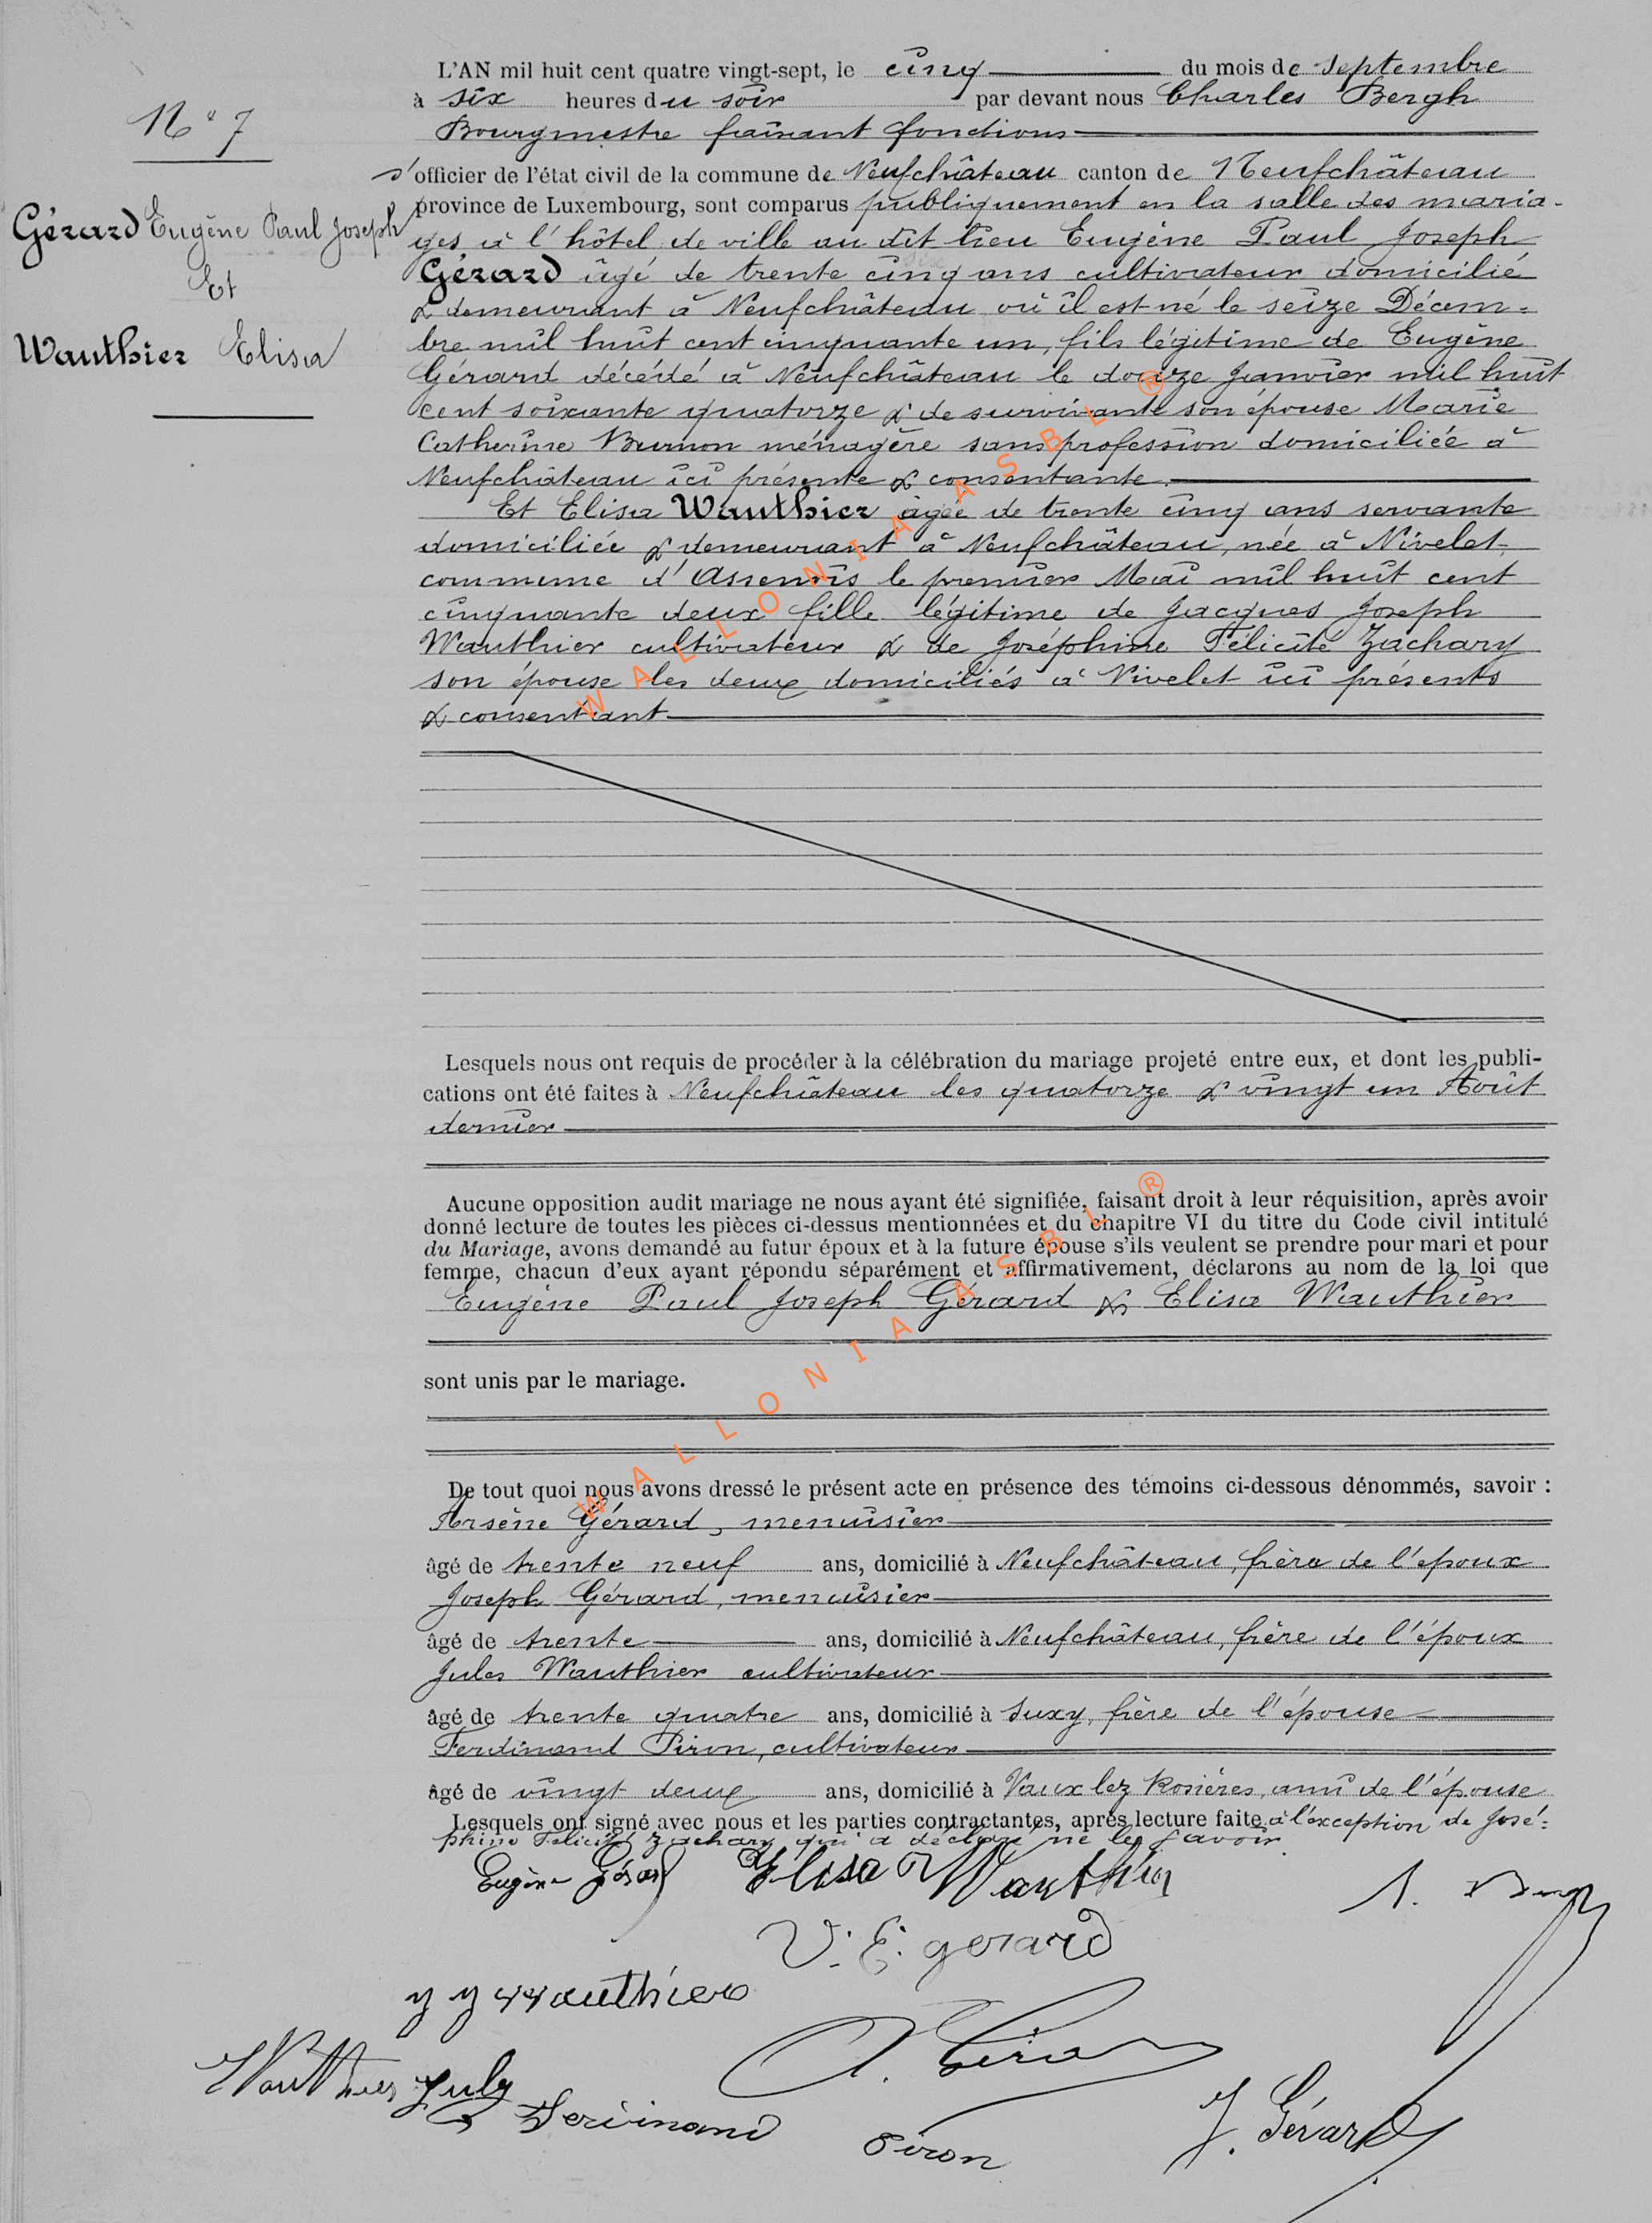 N° 7
Gérard Eugène Paul Joseph
Et
Wauthier Elisa
L'AN mil huit cent quatre vingt-sept, le cinq du mois de Septembre
à six heures du soir par devant nous Charles Bergh
Bourgmestre faisant fonctions
d'officier de l'état civil de la commune de Neufchâteau canton de Neufchâteau
province de Luxembourg, sont comparus publiquement en la salle des maria-
ges à l'hôtel de ville au dit lieu Eugène Paul Joseph
Gérard âgé de trente cinq ans cultivateur domicilié
& demeurant à Neufchâteau où il est né le seize Décem-
bre mil huit cent cinquante un, fils légitime de Eugène
Gérard décédé à Neufchâteau le douze Janvier mil huit
cent soixante quatorze & de survivante son épouse Marie
Catherine ménagère sans profession domiciliée à
Neufchâteau ici présente & consentante.
Et Elisa Wauthier âgée de trente cinq ans servante
domiciliée & demeurant à Neufchâteau, née à Nivelet,
commune d'Assenois le premier Mai mil huit cent
cinquante deux fille légitime de Jacques Joseph
Wauthier cultivateur & de Joséphine Félicité Zachary
son épouse les deux domiciliés à Nivelet ici présents
& consentiant
Lesquels nous ont requis de procéder à la célébration du mariage projeté entre eux, et dont les publi-
cations ont été faites à Neufchâteau les quatorze & vingt un Août
dernier
Aucune opposition audit mariage ne nous ayant été signifiée, faisant droit à leur réquisition, après avoir
donné lecture de toutes les pièces ci-dessus mentionnées et du chapitre VI du titre du Code civil intitulé
du Mariage, avons demandé au futur époux et à la future épouse s'ils veulent se prendre pour mari et pour
femme, chacun d'eux ayant répondu séparément et affirmativement, déclarons au nom de la loi que
Eugène Paul Joseph Gérard & Elisa Wauthier
sont unis par le mariage.
De tout quoi nous avons dressé le présent acte en présence des témoins ci-dessous dénommés, savoir :
Arsène Gérard, menuisier
âgé de trente neuf ans, domicilié à Neufchâteau, frère de l'époux
Joseph Gérard, menuisier
âgé de trente ans, domicilié à Neufchâteau, frère de l'époux
Jules Wauthier cultivateur
âgé de trente quatre ans, domicilié à Suxy, frère de l'épouse
Ferdinand Piron, cultivateur
âgé de vingt deux ans, domicilié à Vaux lez Rosières, ami de l'épouse
Lesquels ont signé avec nous et les parties contractantes, après lecture faite à l'exception de José-
phine Félicité Zachary qui a déclaré ne le savoir
Eugène Gérard Elisa Wauthier
V. E. gerard
J J Wauthier
Wauthier Jules
Ferdinand Piron
J. Gérard
WALLONIA ASBL ®
WALLONIA ASBL ®